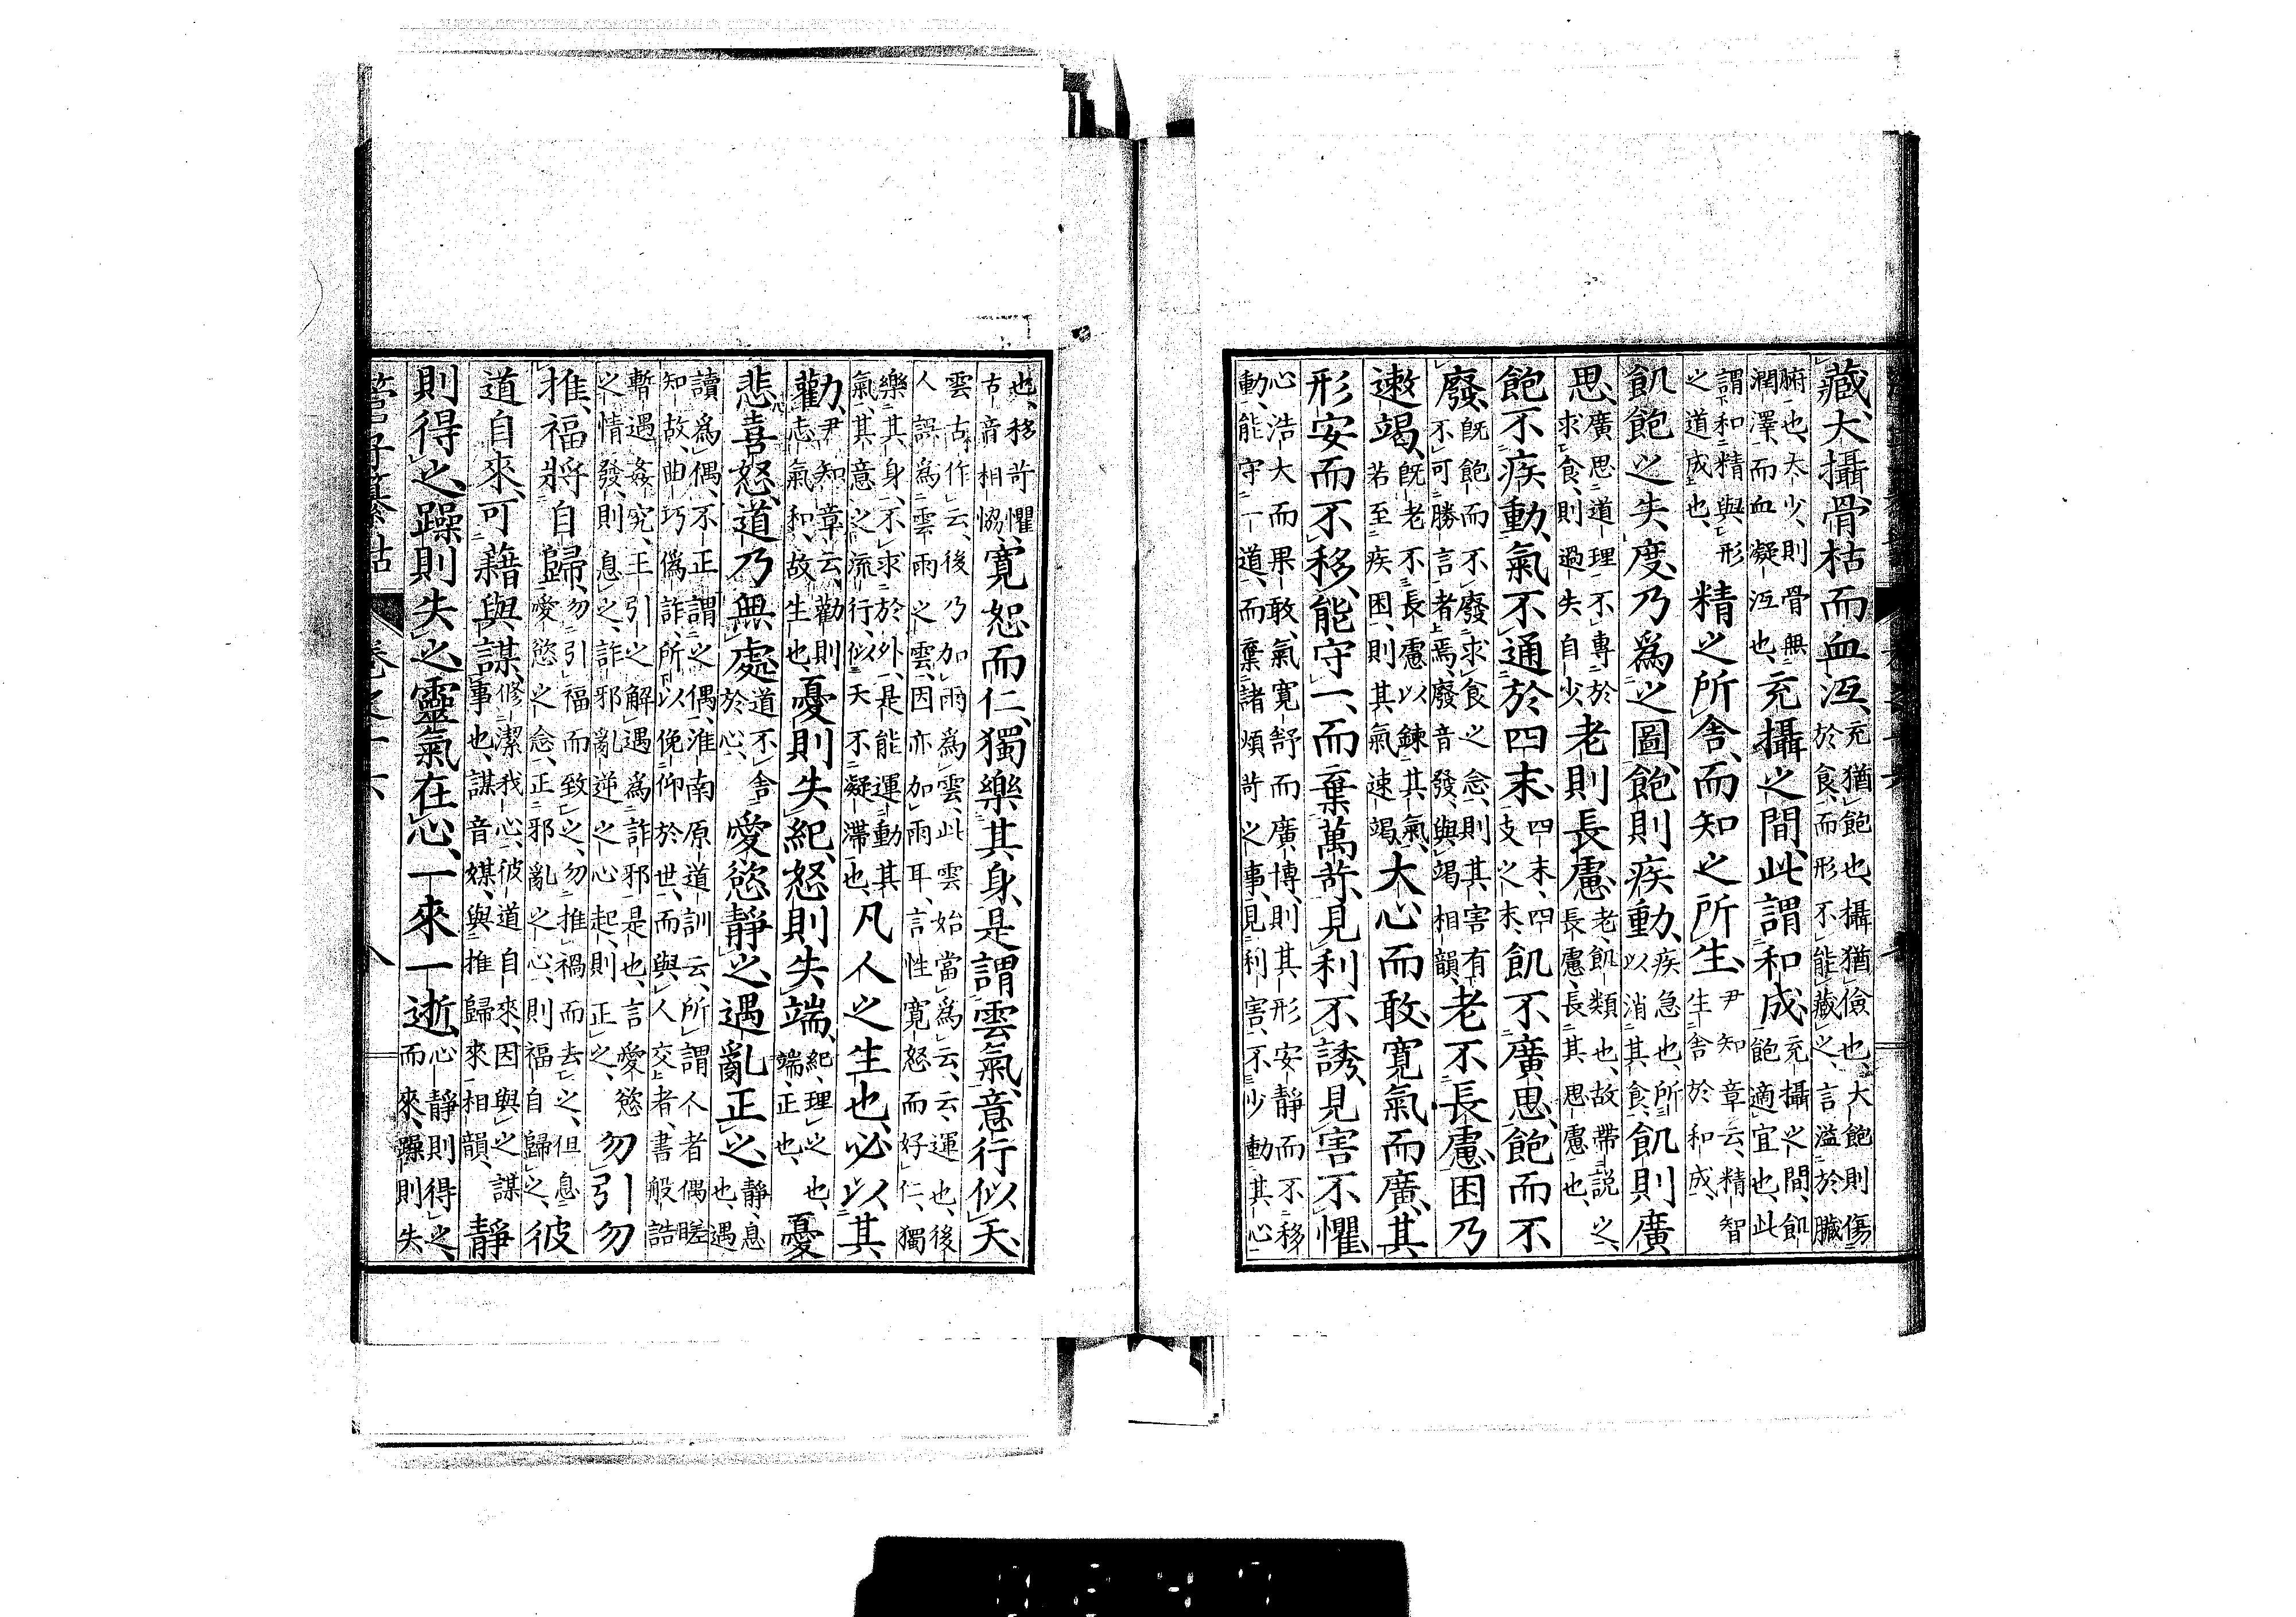 藏、大攝骨枯而血沍、充猶飽也、攝猶儉也、大飽則傷於食、而形不能藏之、言溢於臟
腑也、太少、則骨無潤澤、而血凝沍也、充攝之間、此謂和成、充攝之間、飢飽適宜也、此
謂和精與形之道成也、精之所舍、而知之所生、尹知章云、精智生舍於和成、
飢飽之失度、乃爲之圖、飽則疾動、疾急也、所以消其食、飢則廣
思、廣思道理、不專於求食、則過失自少、老則長慮、老飢類也、故帶説之、長慮、長其思慮也、
飽不疾動、氣不通於四末、四末、四支之末、飢不廣思、飽而不
廢、既飽而不廢求食之念、則其害有不可勝言者焉、廢音發、與竭相韻、老不長慮、困乃
遬竭、既老不長慮以錬其氣、若至疾困、則其氣速竭、大心而敢、寬氣而廣、其
形安而不移、能守一、而棄萬苛、見利不誘、見害不懼、
心浩大而果敢、氣寬舒而廣博、則其形安靜而不移動、能守一道、而棄諸煩苛之事、見利害、不少動其心
也、移苛懼、古音相協、寬恕而仁、獨樂其身、是謂雲氣、意行似天、
雲古作云、後乃加雨爲雲、此雲始當爲云、云、運也、後人誤爲雲雨之雲、因亦加雨耳、言性寬恕而好仁、獨
樂其身、不求於外、是能運動其氣、其意之流行、似天不凝滯也、凡人之生也、必以其
勸、尹知章云、勸則志氣和、故生也、憂則失紀、怒則失端、紀、理之也、端、正也、憂
悲喜怒、道乃無處、道不舍於心、愛慾靜之、遇亂正之、靜、息也、遇
讀爲偶、不正謂之偶、淮南原道訓云、所謂人者偶䁟知故、曲巧僞詐、所以俛仰於世、而與人交者、書般誥
暫遇姦宄、王引之解遇爲詐邪是也、言愛慾之情發、則息之、詐邪亂逆之心起、則正之、勿引勿
推、福將自歸、勿引福而致之、勿推禍而去之、但息愛慾之念、正邪亂之心、則福自歸之、彼
道自來、可藉與謀、修潔我心、彼道自來、因與之謀事也、謀音媒、與推歸來相韻、靜
則得之、躁則失之、靈氣在心、一來一逝、心靜則得之、而來、躁則失
管子纂詁 卷之十六 八